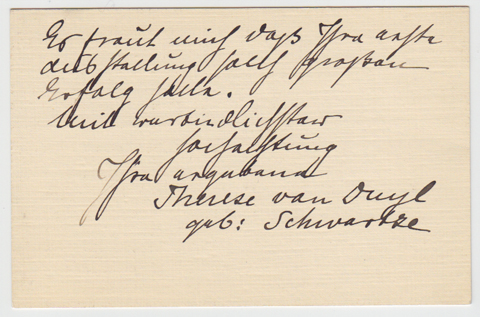 Es freut mich daß Ihre erste
Ausstellung solch großen
Erfolg hatte.
Mit verbindlichster
Hochachtung
Ihre ergebene
Therese van Duyl
geb: Schwartze